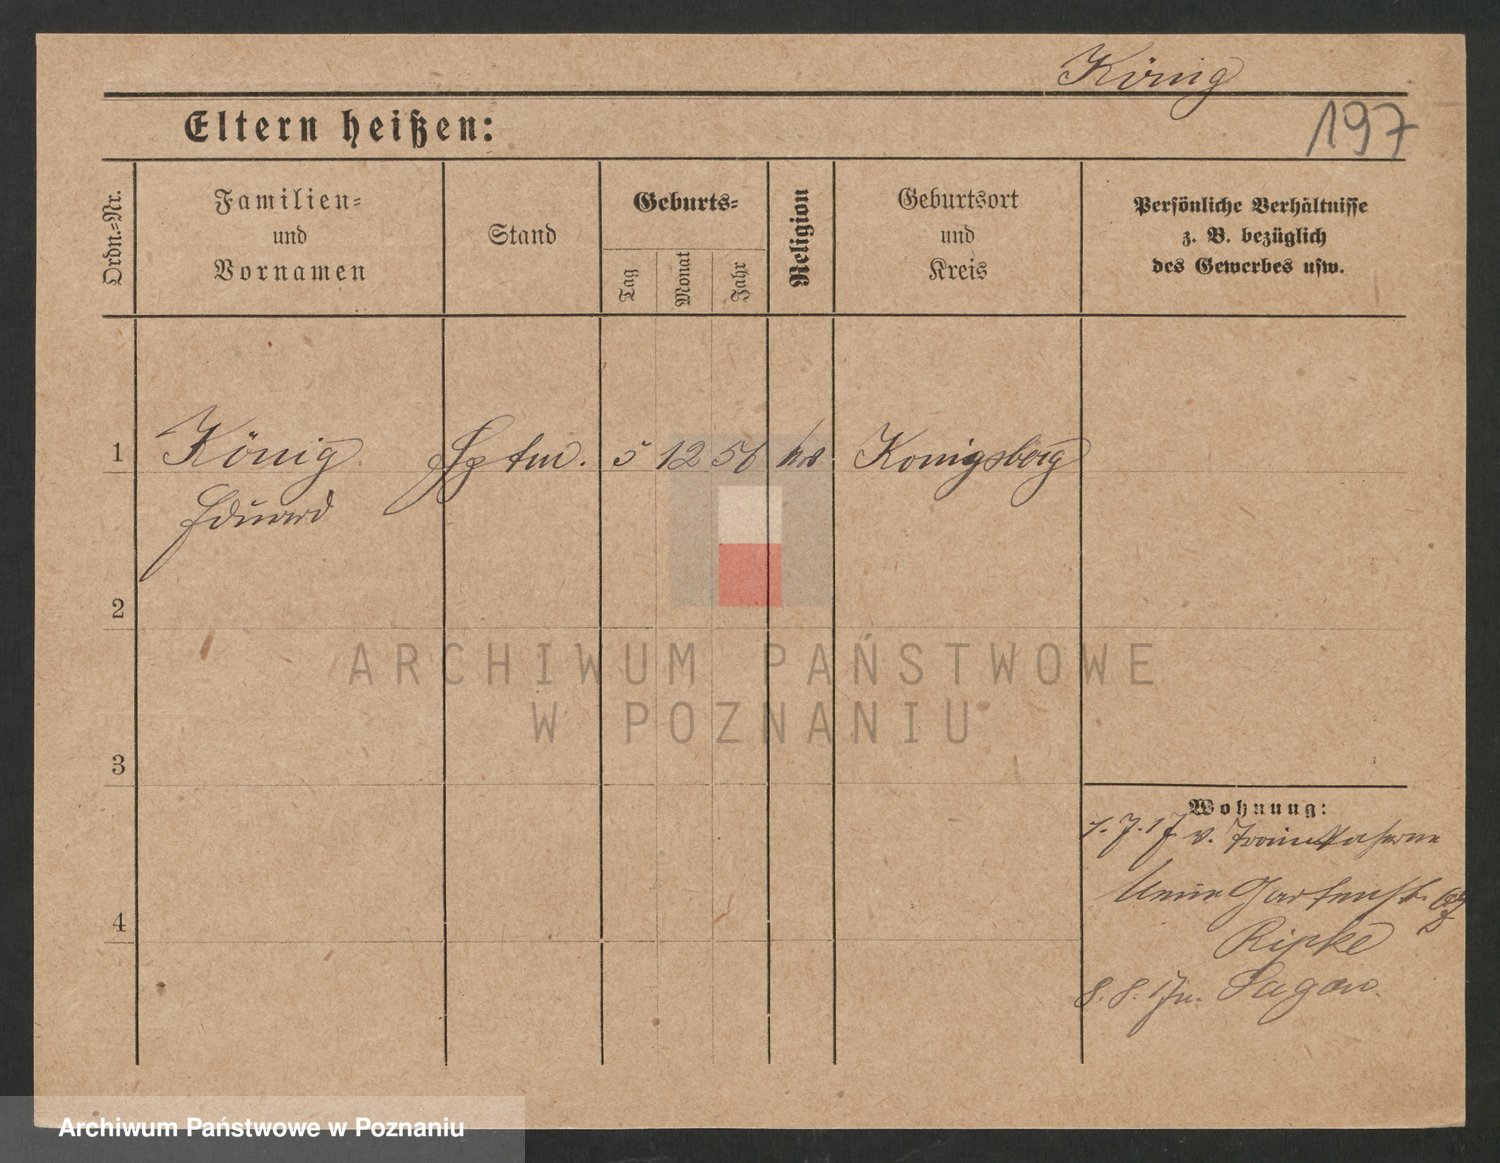 König
197
Eltern heißen:
Ordn.-Nr.
Familien-
und
Vornamen
Stand
Geburts-
Tag
Monat
Jahr
Religion
Geburtsort
und
Kreis
Persönliche Verhältnisse
z. B. bezüglich
des Gewerbes usw.
1 König Hptm. 5 12 56 Königsberg
Eduard
2
3
4
Wohnung:
7. 17 v. Trainkaserne
Gartenstr.
Ripke
8. 8. 17 n. Sagan.
ARCHIWUM PAŃSTWOWE
W POZNANIU
Archiwum Państwowe w Poznaniu